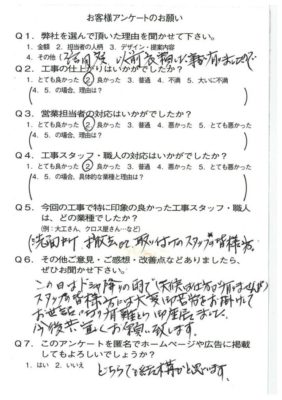 お客様アンケートのお願い
Q1. 弊社を選んで頂いた理由を聞かせて下さい。
1. 金額 2. 担当者の人柄 3. デザイン・提案内容
4. その他 (
以前
Q2. 工事の仕上がりはいかがでしたか?
1. とても良かった 2. 良かった 3. 普通 4. 不満 5. 大いに不満
(4. 5. の場合、理由は?
Q3. 営業担当者の対応はいかがでしたか?
1. とても良かった 2. 良かった 3. 普通 4. 悪かった 5. とても悪かった
(4. 5. の場合、理由は?
Q4. 工事スタッフ・職人の対応はいかがでしたか?
1. とても良かった 2. 良かった 3. 普通 4. 悪かった 5. とても悪かった
(4. 5. の場合、具体的な業種と理由は?
Q5. 今回の工事で特に印象の良かった工事スタッフ・職人
は、どの業種でしたか?
(例:大工さん、クロス屋さん…など)
(洗面所 撤去 取り付けのスタッフの皆様方
Q6. その他ご意見・ご感想・改善点などありましたら、
ぜひお聞かせ下さい。
この日はドシャ降りの雨で(天候は仕方が有りませんが)
スタッフの皆様方には大変御苦労をお掛けして
お世話になり有難とう御座居ました。
今後共宜しくお願い致します。
Q7. このアンケートを匿名でホームページや広告に掲載
してもよろしいでしょうか?
1. はい 2. いいえ
どちらでも結構かと思います。